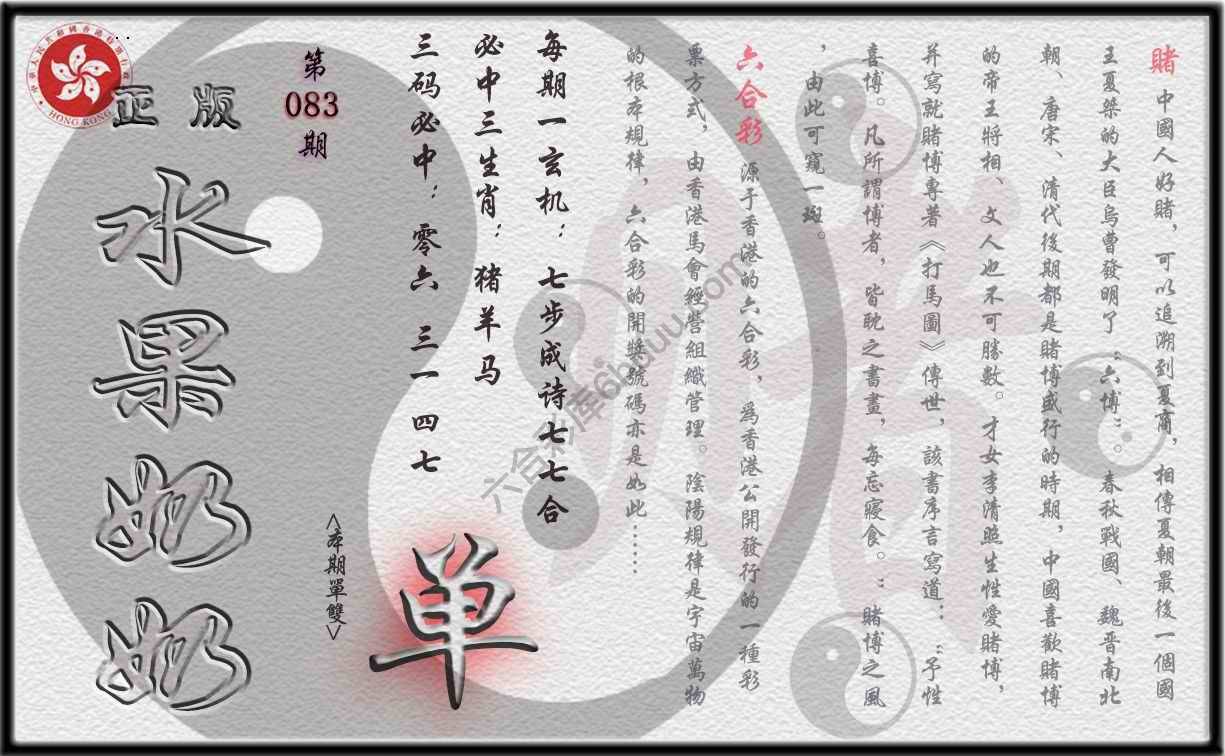 赌 中國人好賭，可以追溯到夏商，相傳夏朝最後一個國
王夏桀的大臣烏曹發明了“六博”。春秋戰國、魏晋南北
朝、唐宋、清代後期都是賭博盛行的時期，中國喜歡賭博
的帝王將相、文人也不可勝數。才女李清照生性愛賭博，
并寫就賭博專著《打馬圖》傳世，該書序言寫道：“予性
喜博。凡所謂博者，皆耽之晝晝，每忘寢食。”賭博之風
，由此可窺一斑。
六合彩 源于香港的六合彩，為香港公開發行的一種彩
票方式，由香港馬會經營組織管理。陰陽規律是宇宙萬物
的根本規律，六合彩的開獎號碼亦是如此……
每期一玄机：七步成诗七七合
必中三生肖：猪羊马
三码必中：零六 三一 四七
第
083
期
<本期單雙>
单
正版
水果奶奶
中華人民共和國香港特別行政區
HONG KONG
六合彩库6hduu.com